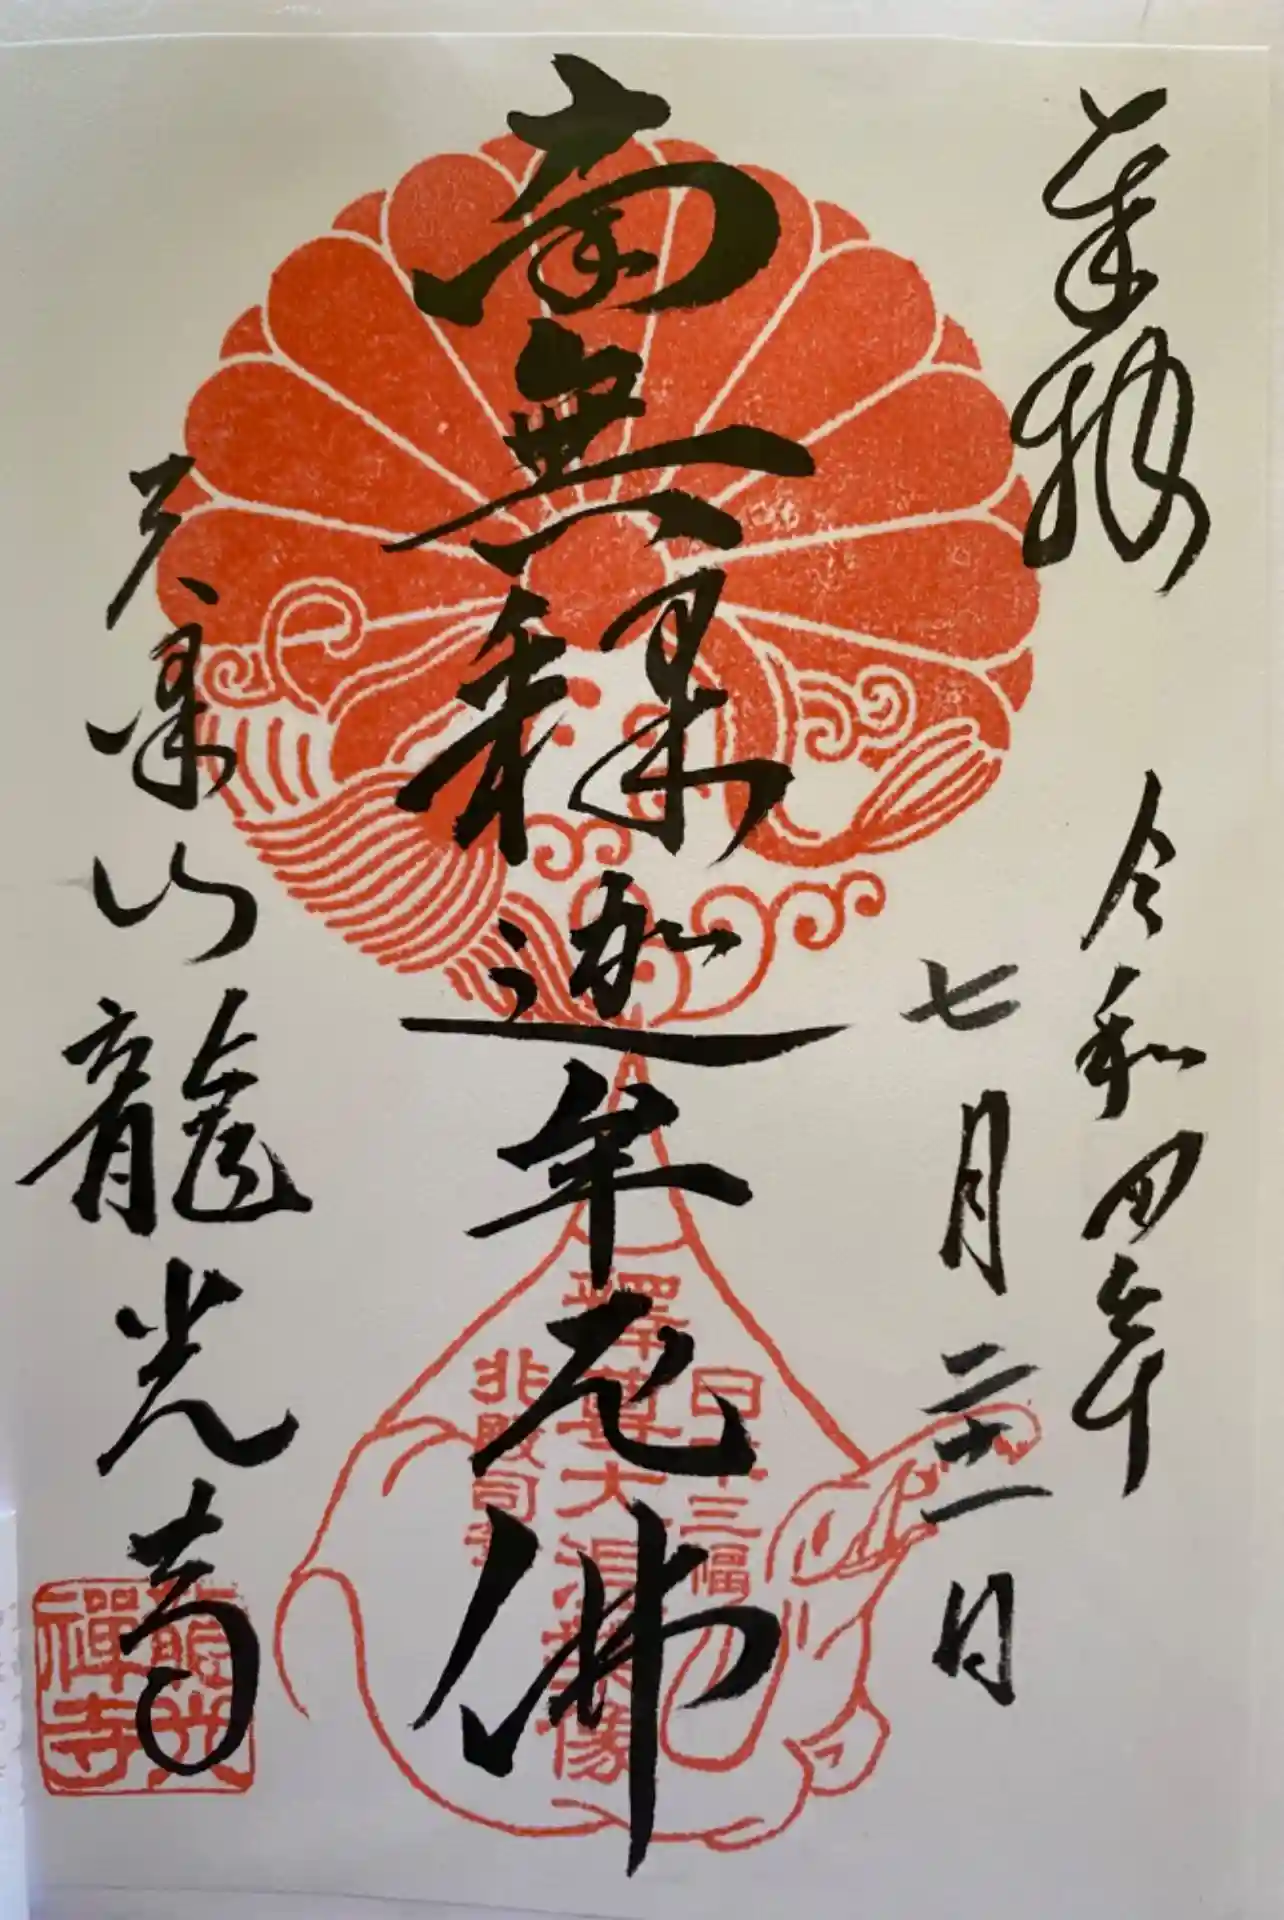 奉拝
令和四年
七月二十一日
南無釋迦牟尼佛
日本三幅
釋尊大涅槃像
兆殿司筆
天澤山龍光寺
龍光禪寺